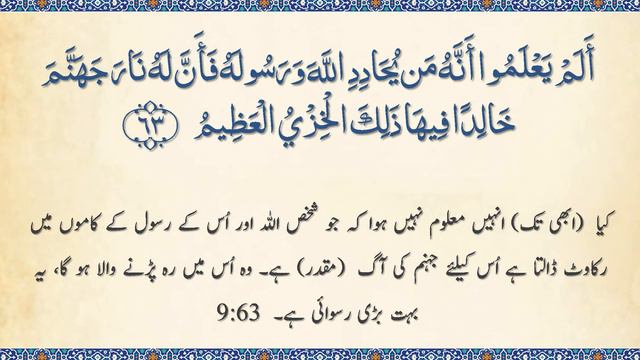 أَلَمْ يَعْلَمُوا أَنَّهُ مَن يُحَادِدِ اللَّهَ وَرَسُولَهُ فَأَنَّ لَهُ نَارَ جَهَنَّمَ
خَالِدًا فِيهَا ذَلِكَ الْخِزْيُ الْعَظِيمُ ﴿٦٣﴾
کیا (ابھی تک) انہیں معلوم نہیں ہوا کہ جو شخص اللہ اور اُس کے رسول کے کاموں میں
رکاوٹ ڈالتا ہے اُس کیلئے جہنم کی آگ (مقدر) ہے۔ وہ اُس میں رہ پڑنے والا ہو گا، یہ
بہت بڑی رسوائی ہے۔ 9:63